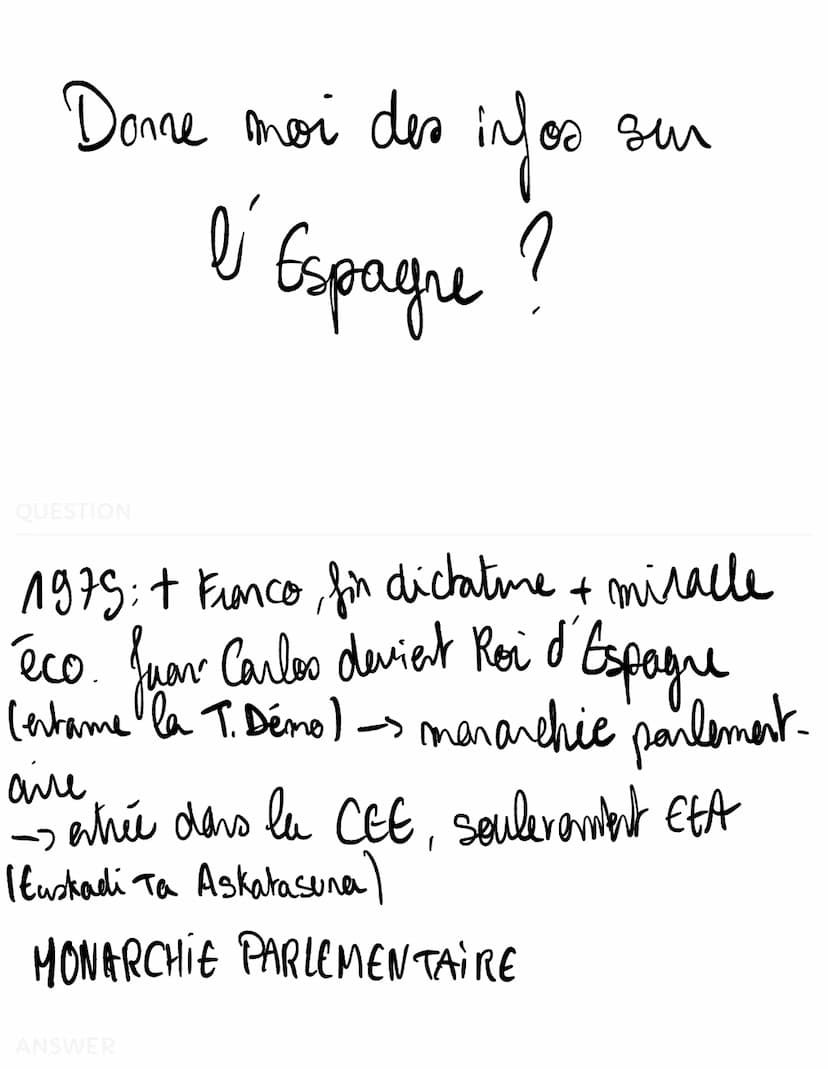 Donne moi des infos sur
l'Espagne ?
QUESTION
1975 : + Franco, fin dictature + miracle
éco. Juan Carlos devient Roi d'Espagne
(entame la T. Démo) -> monarchie parlement-
aire
-> entrée dans la CEE, soulèvement ETA
(Euskadi Ta Askatasuna)
MONARCHIE PARLEMENTAIRE
ANSWER